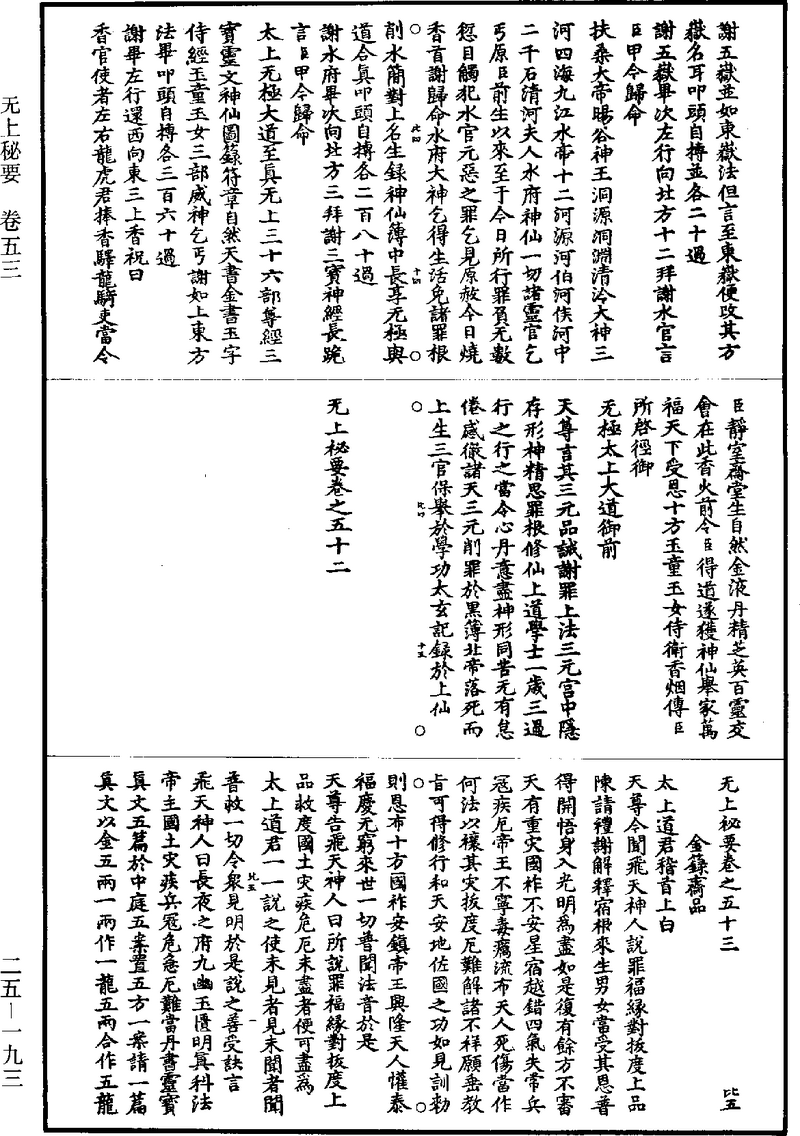 无上秘要　卷五三
二五—一九三
謝五嶽並如東嶽法但言至東嶽便改其方
嶽名耳叩頭自摶並各二十過
謝五嶽畢次左行向北方十二拜謝水官言
臣甲今歸命
扶桑大帝暘谷神王洞源洞淵清泠大神三
河四海九江水帝十二河源河伯河侯河中
二千石清河夫人水府神仙一切諸靈官乞
丐原臣前生以來至于今日所行罪負无數
愆目觸犯水官元惡之罪乞見原赦今日燒
香首謝歸命水府大神乞得生活免諸罪根
削水簡對上名生録神仙簿中長享无極與
道合真叩頭自摶各二百八十過
謝水府畢次向北方三拜謝三寶神經長跪
言臣甲今歸命
太上无極大道至真无上三十六部尊經三
寶靈文神仙圖籙符章自然天書金書玉字
侍經玉童玉女三部威神乞丐謝如上東方
法畢叩頭自摶各三百六十過
謝畢左行還西向東三上香祝曰
香官使者左右龍虎君捧香驛龍騎吏當令
臣靜室齋堂生自然金液丹精芝英百靈交
會在此香火前令臣得道遂獲神仙舉家萬
福天下受恩十方玉童玉女侍衛香烟傳臣
所啓徑御
无極太上大道御前
天尊言其三元品誡謝罪上法三元宮中隱
存形神精思罪根修仙上道學士一歲三過
行之行之當令心丹意盡神形同苦无有怠
倦感徹諸天三元削罪於黑簿北帝落死而
上生三官保舉於學功太玄記録於上仙
无上秘要卷之五十二
无上秘要卷之五十三
比五
金籙齋品
太上道君稽首上白
天尊今聞飛天神人說罪福縁對拔度上品
陳請禮謝解釋宿根來生男女當受其恩普
得開悟身入光明為盡如是復有餘方不審
天有重灾國祚不安星宿越錯四氣失常兵
冦疾厄帝王不寧毒癘流布天人死傷當作
何法以禳其灾拔度厄難解諸不祥願垂教
旨可得修行和天安地佐國之功如見訓勑
則恩布十方國祚安鎮帝王興隆天人懽泰
福慶无窮來世一切普聞法音於是
天尊告飛天神人曰所說罪福縁對拔度上
品救度國土灾疾危厄未盡者便可盡為
太上道君一一說之使未見者見未聞者聞
普救一切令衆見明於是說之善受訣言
飛天神人曰長夜之府九幽玉匱明真科法
帝主國土灾疾兵冦危急厄難當丹書靈寶
真文五篇於中庭五案置五方一案請一篇
真文以金五兩一兩作一龍五兩合作五龍